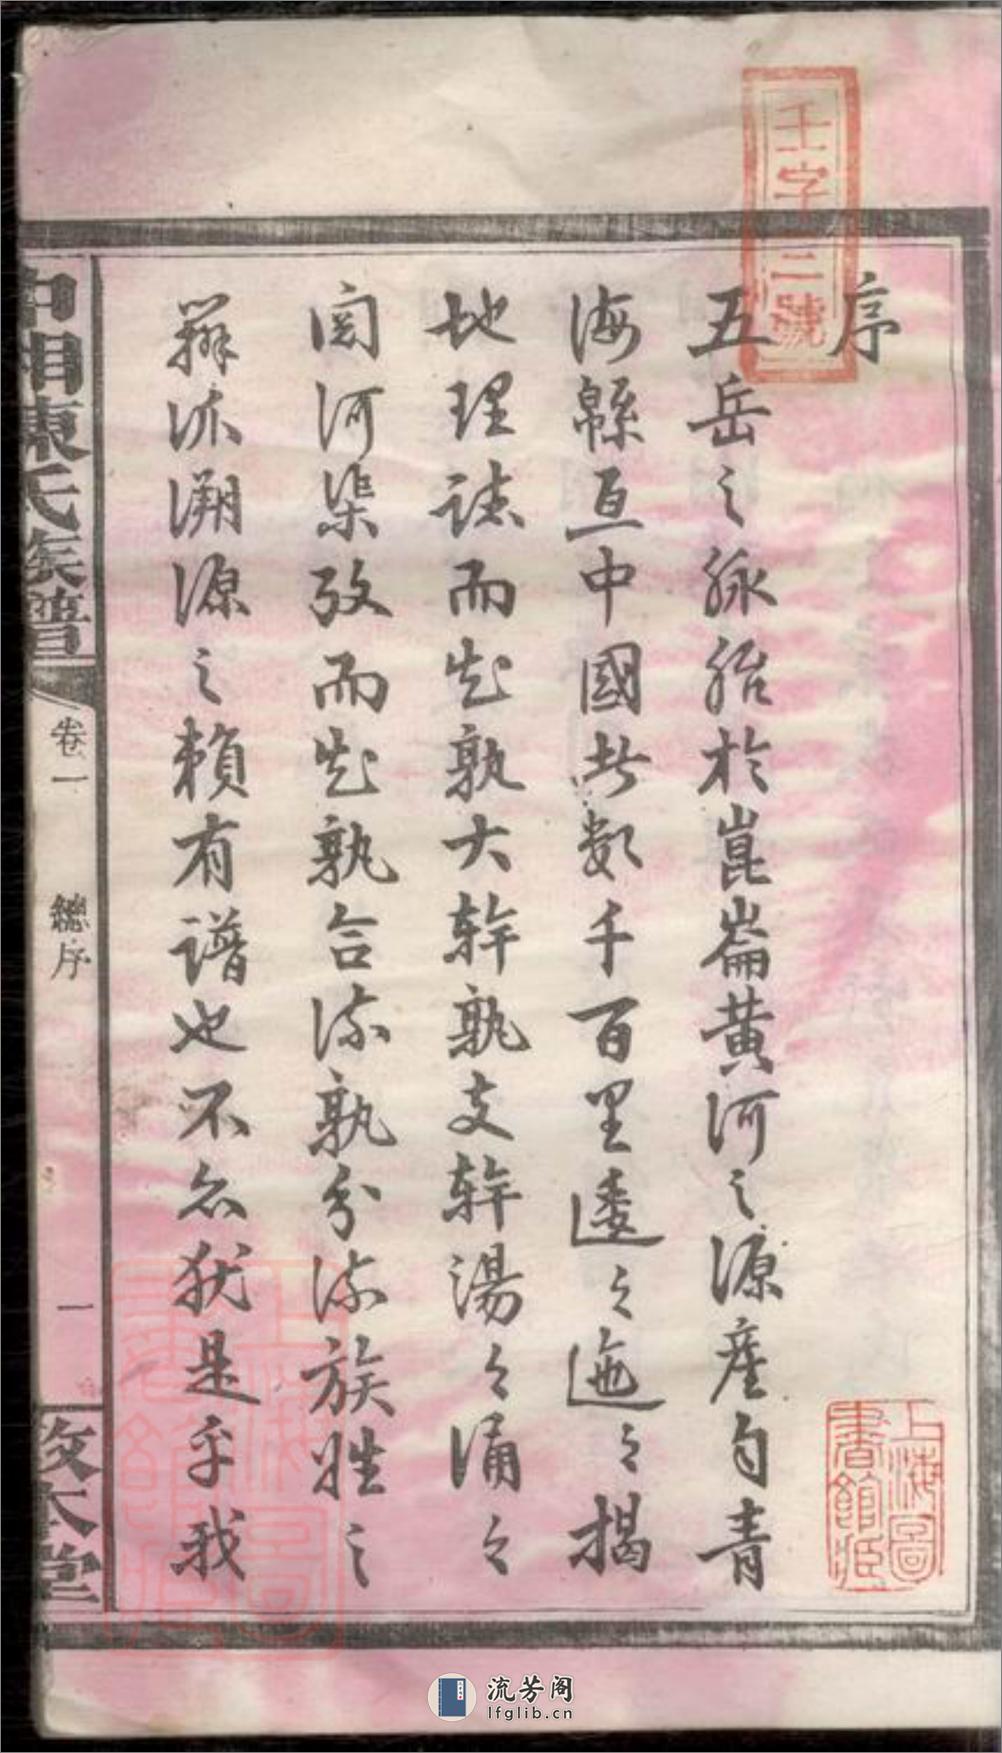 壬字十三號
序
五岳之脉胎於崑崙黃河之源產自青
海緜亘中國數千百里逶〻迤〻揭
地理誌而知孰大幹孰支幹湯〻涌〻
閱河渠攷而知孰合流孰分流族姓之
辨派溯源之賴有譜也不亦犹是乎我
中湘陳氏族譜
卷一
總序
一
敦本堂
上海圖書館藏
上海圖書館藏
流芳阁
lfglib.cn